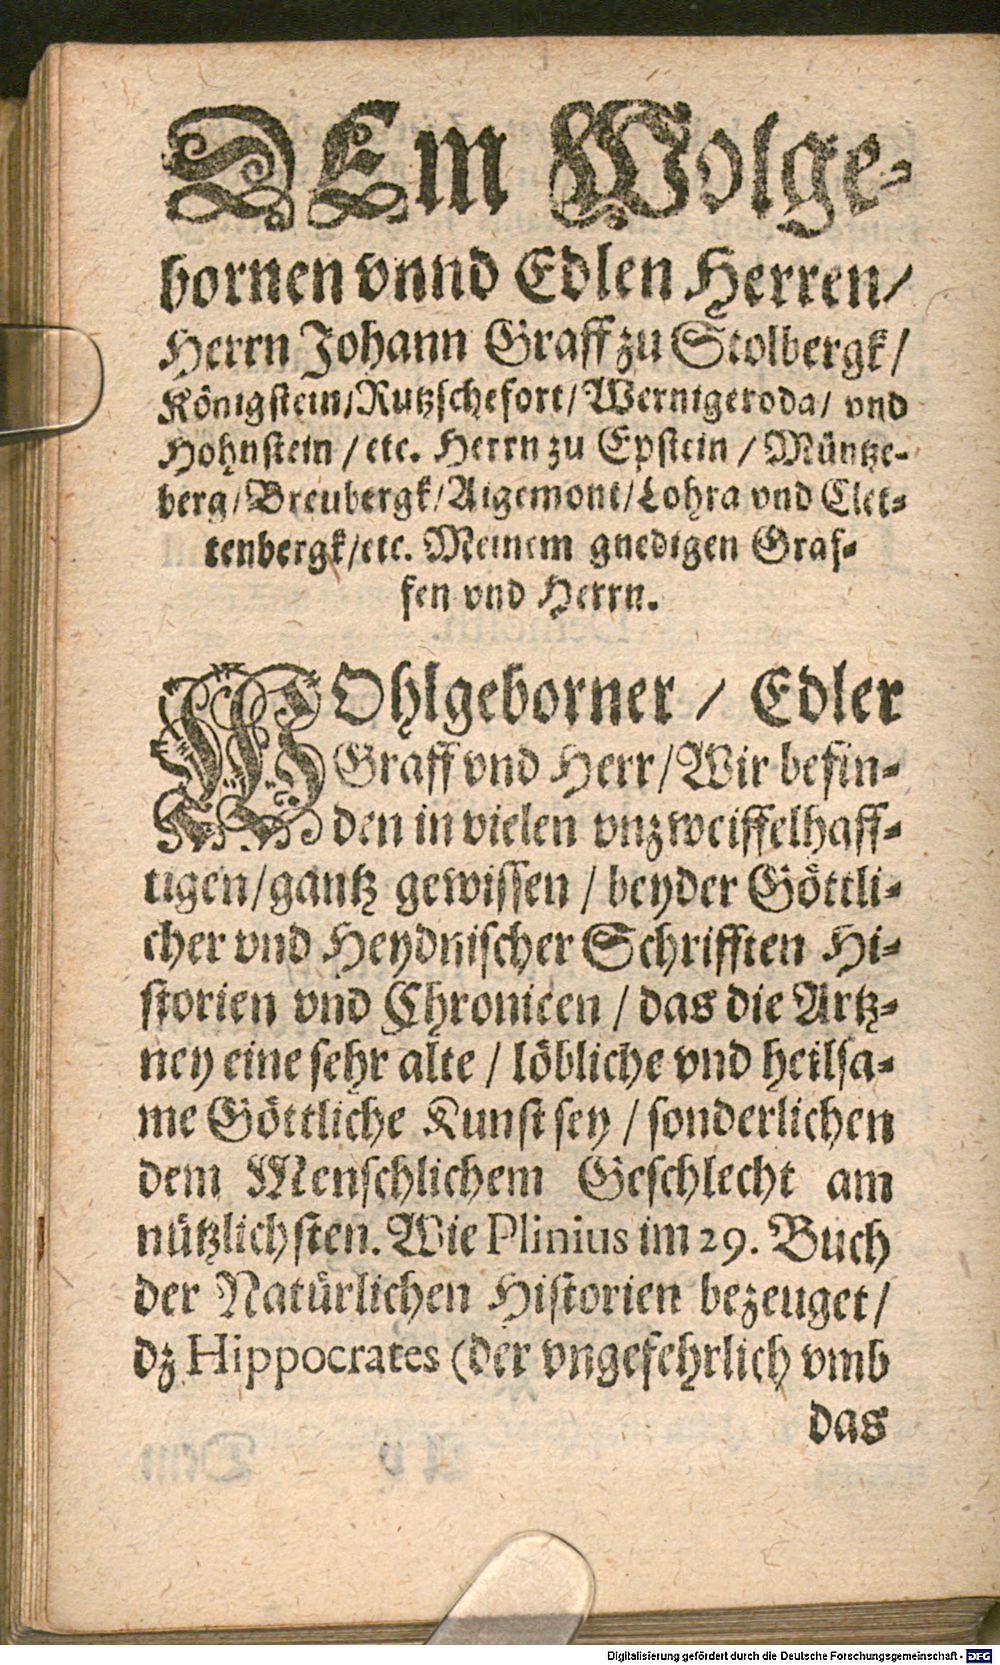 DEm Wolge-
bornen vnnd Edlen Herren/
Herrn Johann Graff zu Stolbergk/
Königstein/Rutzschefort/Wernigeroda/ vnd
Hohnstein / etc. Herrn zu Epstein / Müntze-
berg/Breubergk/Aigemont/Lohra vnd Clet-
tenbergk/etc. Meinem gnedigen Graf-
fen vnd Herrn.
WOhlgeborner / Edler
Graff vnd Herr/Wir befin-
den in vielen vnzweiffelhaff-
tigen/gantz gewissen / beyder Göttli-
cher vnd Heydnischer Schrifften Hi-
storien vnd Chronicen / das die Artz-
ney eine sehr alte / löbliche vnd heilsa-
me Göttliche Kunst sey / sonderlichen
dem Menschlichem Geschlecht am
nützlichsten. Wie Plinius im 29. Buch
der Natürlichen Historien bezeuget/
dz Hippocrates (der vngefehrlich vmb
das
Digitalisierung gefördert durch die Deutsche Forschungsgemeinschaft - DFG